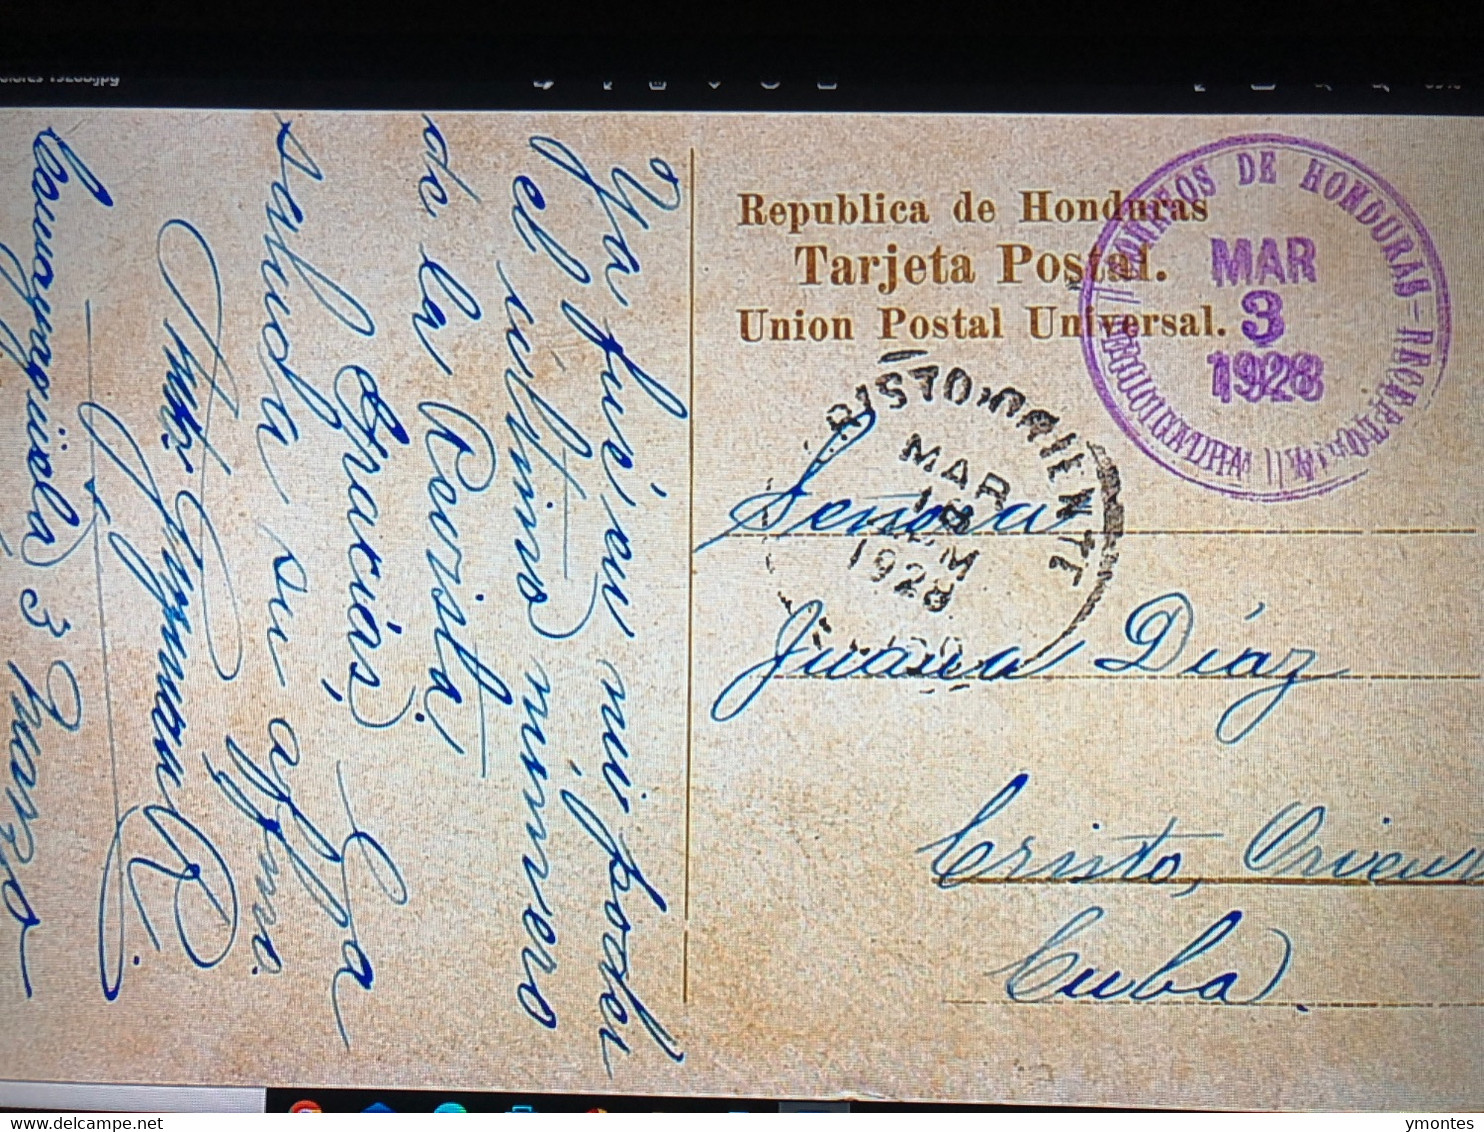 Republica de Honduras
Tarjeta Postal.
Union Postal Universal.
CORREOS DE HONDURAS
MAR
3
1928
CRISTO, ORIENTE
MAR
18
M
1928
Señora
Juana Díaz
Cristo, Oriente
Cuba.
Ya fué en mi poder
el último número
de la Revista,
Gracias, La
saluda su affmo.
Guzmán R.
Comayagüela 3 Marzo
ymontes